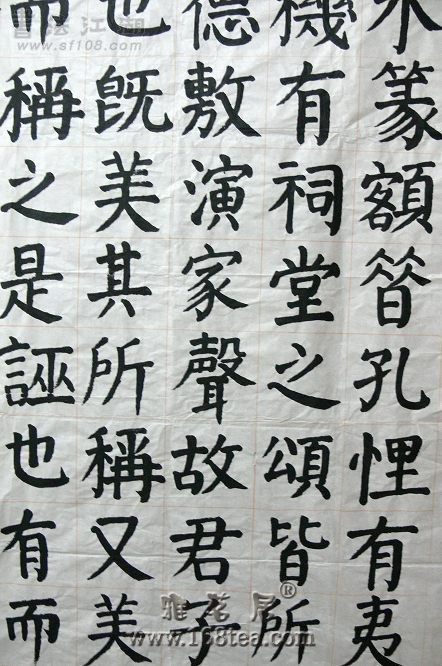 篆額昔孔悝有夷
機有祠堂之頌皆所
德敷演家聲故君子
也既美其所稱又美
而稱之是誣也有而
書法江湖
www.sf108.com
雅茗居®
www.168tea.com